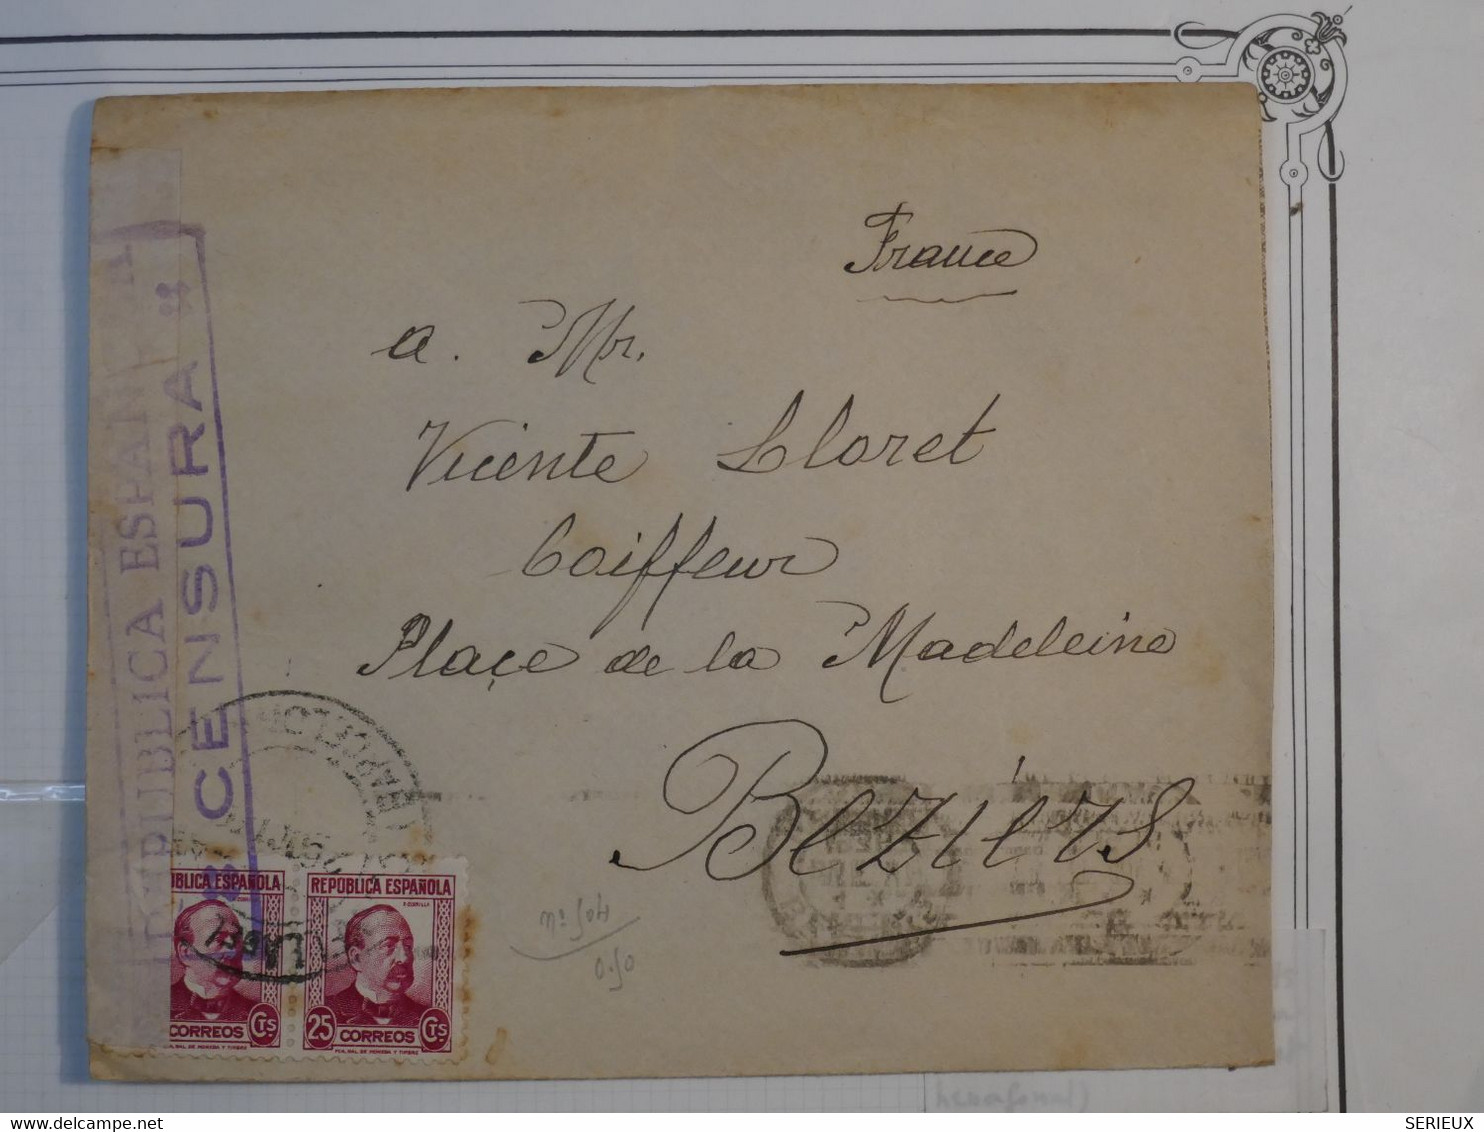 France
a. Mr.
Vicente Lloret
Coiffeur
Place de la Madeleine
Beziers
REPUBLICA ESPAÑ
CENSURA
BARCELONA
UBLICA ESPAÑOLA
CORREOS CTS
REPUBLICA ESPAÑOLA
25 CORREOS CTS
nº 504
0.50
hexagonal)
SERIEUX